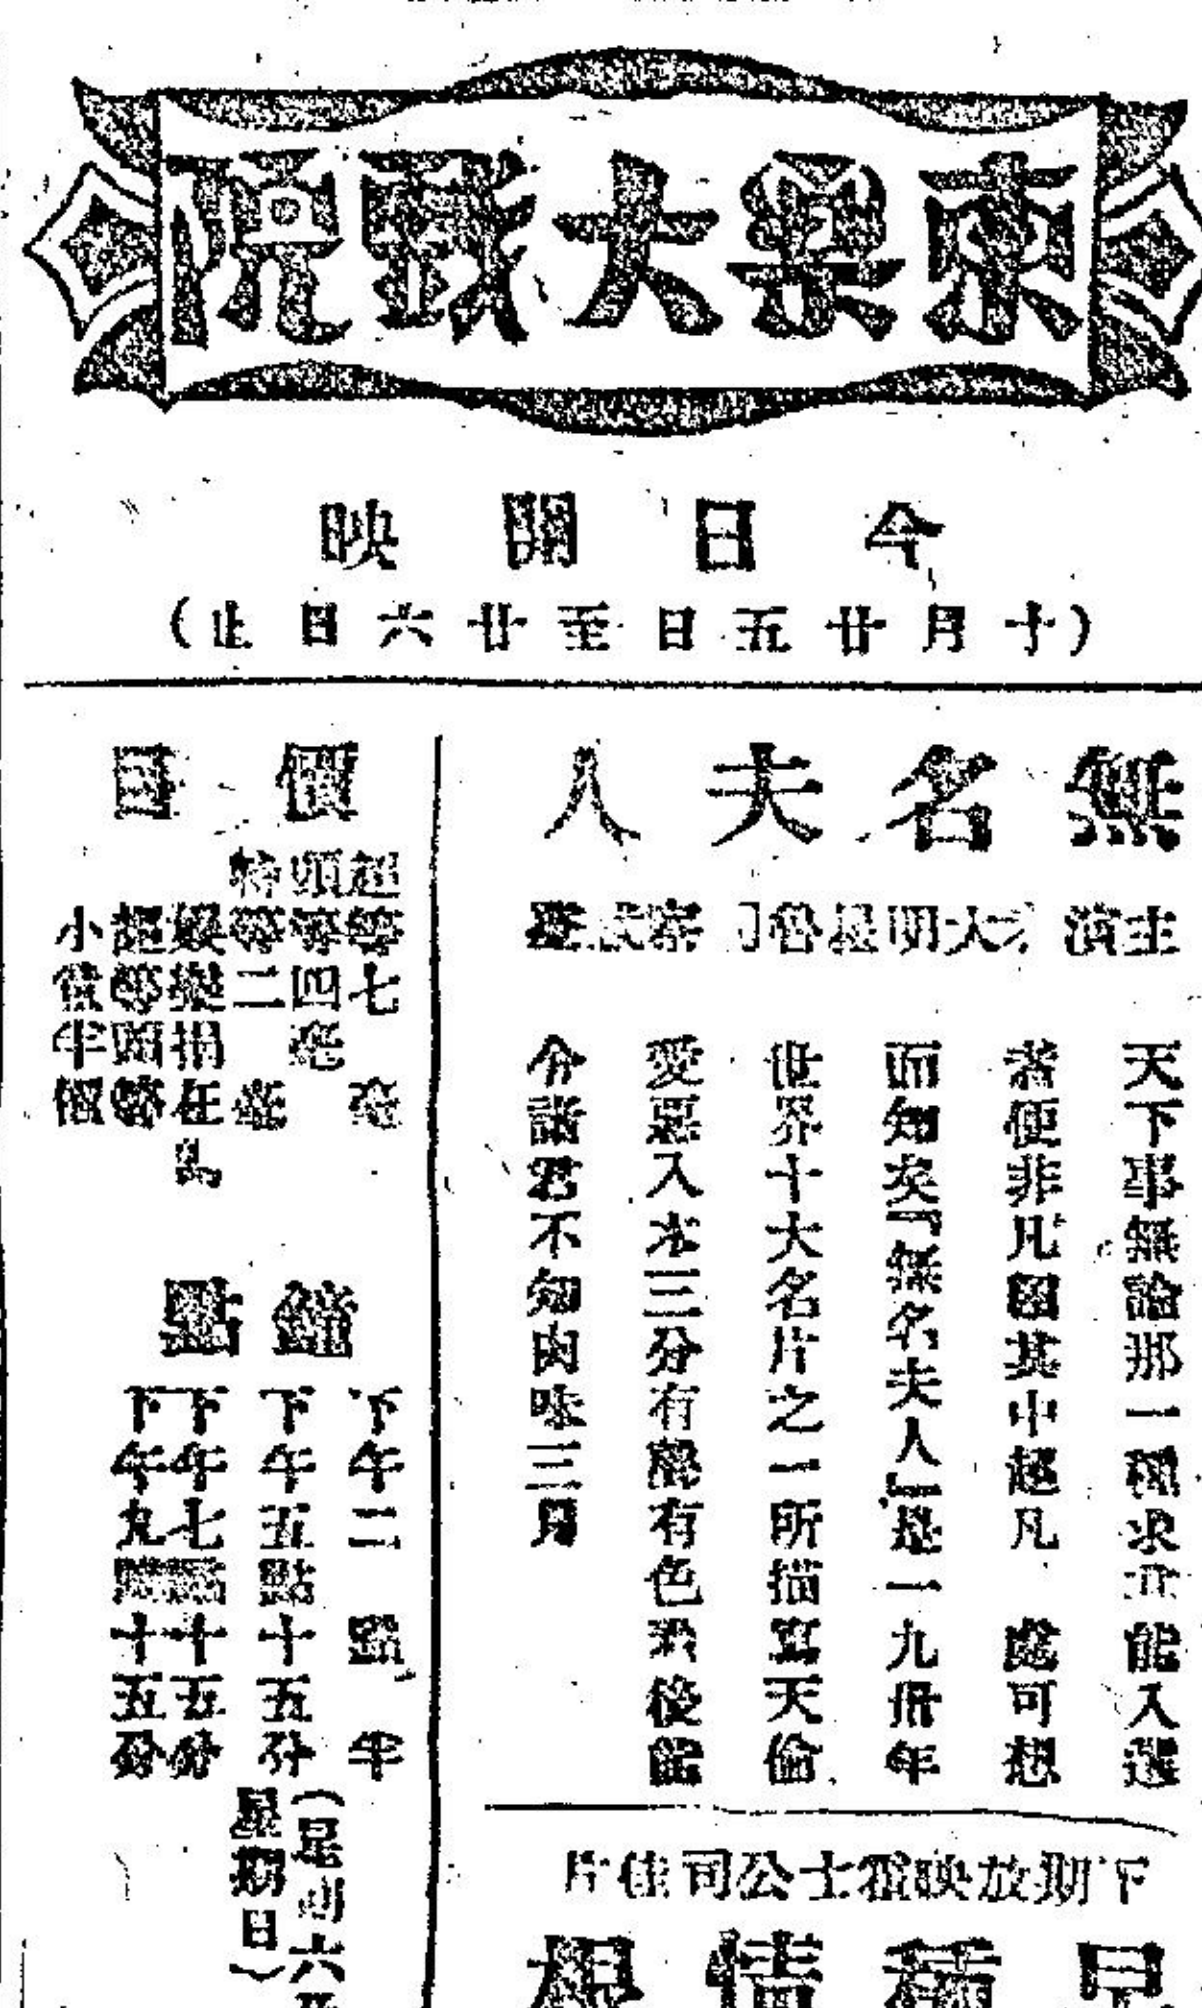 東樂大戲院
今日開映
(十月廿五日至廿六日止)
無名夫人
主演 大明星魯 
天下事無論那一種求其能入選
者便非凡圖其中超凡 處可想
而知矣『無名夫人』是一九卅年
世界十大名片之一所描寫天倫
愛惡入木三分有聲有色 後能
令諸君不知肉味三月
下期放映霍士公司佳片
早種情根
價目
超等七毫
頭等四毫
特等二毫
娛樂捐在內
超等頭等
小童半價
鐘點
下午二點半
下午五點十五分
下午七點十五分
下午九點十五分
(星期六及
星期日)